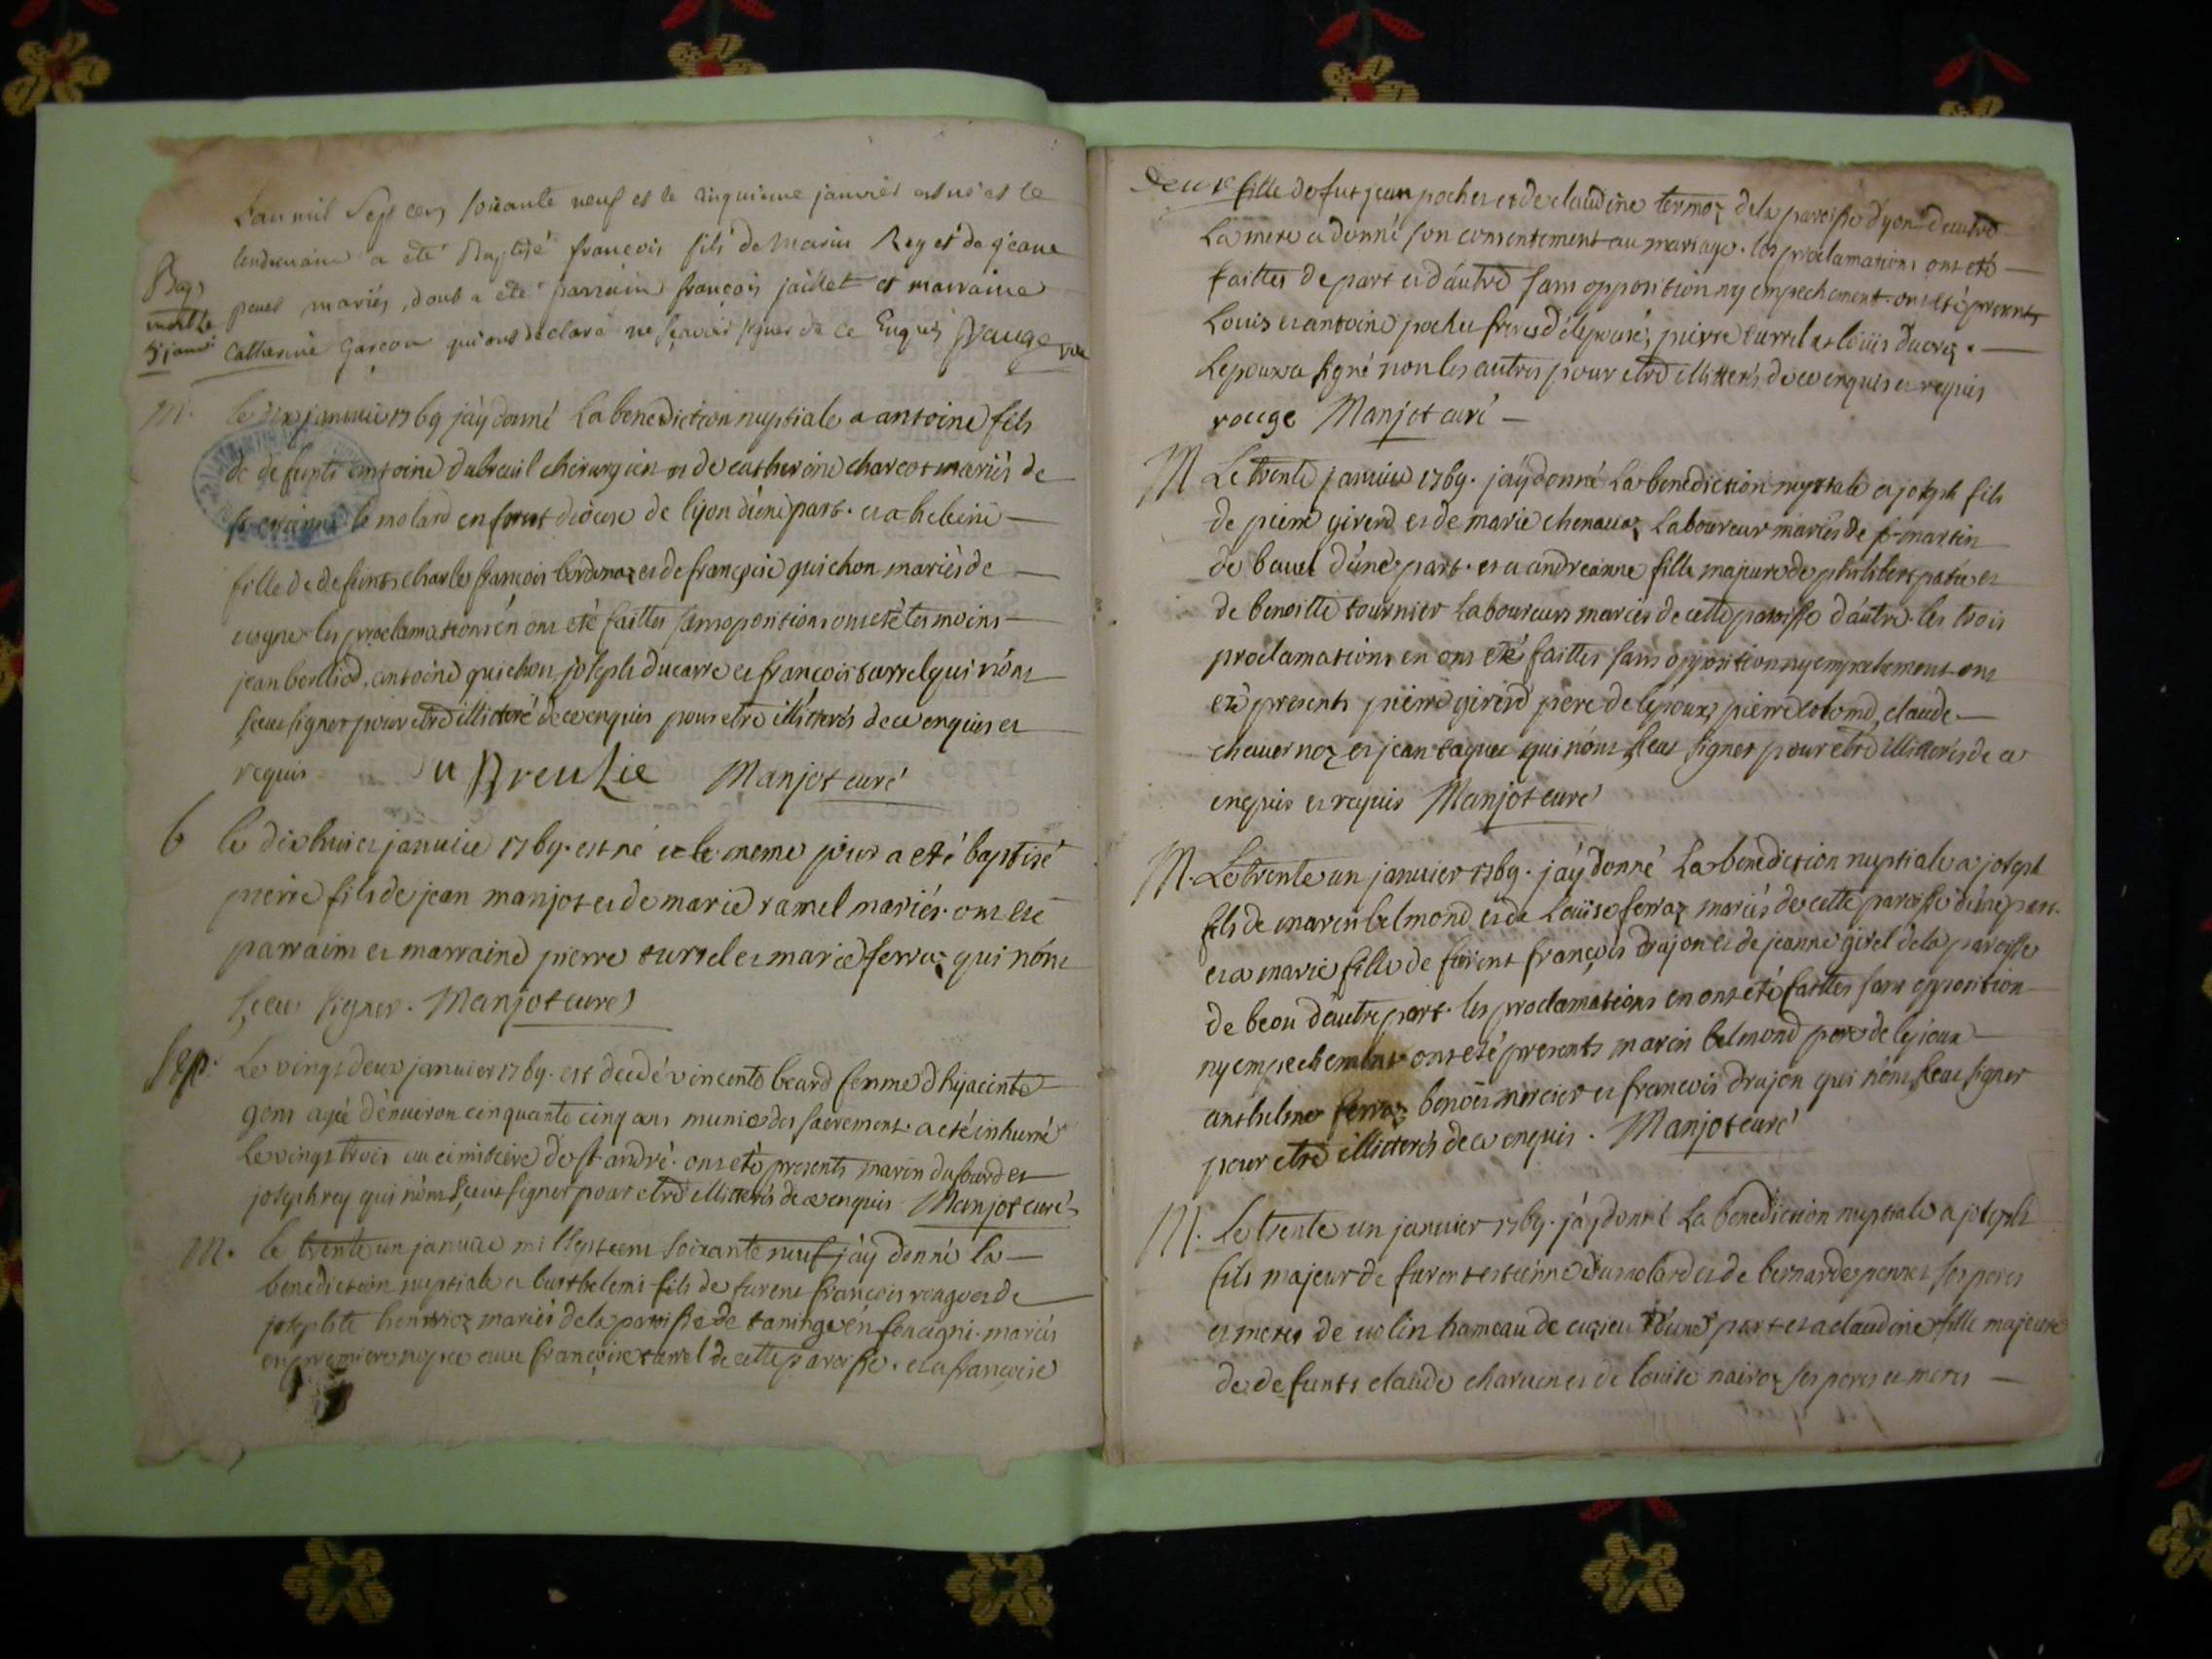 L'an mil Sept cens soixante neuf et le cinquieme janvier est né et le
lendemain a eté Baptisé francois fils de Marin Rey et de jeane
penet mariés, dont a eté parrain françois jaillet et marraine
Catherine Garcon qui ont declaré ne sçavoir signer de ce Enquis
Bap
5 janvi
M. le janvier 1769 j'ay donné La benediction nuptiale a antoine fils
de defunts antoine dubreuil chirurgien et de catherine charcot mariés de
le molard en diocese de lyon d'une part. et a heleine
fille de defunts charle francois bordonaz et de françoise guichon mariés de
les proclamations en ont eté faittes sans opositions ont eté temoins
jean berliod, antoine guichon joseph ducarre et francois turrel qui n'ont
sceu signer pour etre illitteré de ce enquis pour etre illitterés de ce enquis et
requis Manjot curé
b le dixhuict janvier 1769. est né et le meme jour a eté baptisé
pierre fils de jean manjot et de marie ramel mariés. ont eté
parrain et marraine pierre turrel et marie ferraz qui n'ont
sceu signer. Manjot curé
Sep. Le vingt deux janvier 1769. est decedé vincente beard femme d'hyacinte
gons agée d'environ cinquante cinq ans munie des sacrement. a eté inhumé
Le vingt trois au cimitiere de st andré. ont eté presents marin dufourd et
joseph rey qui n'ont sceut signer pour etre illitterés de ce enquis Manjot curé
M. le trente un janvier mil sept cent soixante neuf j'ay donné la
benediction nuptiale a barthelemi fils de furent francois rouge et de
josephte henrioz mariés de la paroisse de taninge en foucigni. mariés
en premiere nopce avec françoise turrel de cette paroisse. et a françoise
Deux fille de fut jean pochet et de claudine termoz de la paroisse d'yon d'autre
La mere a donné son consentement au mariage. les proclamations ont eté
faittes de part et d'autre sans opposition ny empechement. ont eté presents
Louis et antoine pochet freres de l'epouse, pierre turrel et louis ducroz.
Lepoux a signé non les autres pour etre illitterés de ce enquis et requis
rouge Manjot curé
M Le trente janvier 1769. j'ay donné La benediction nuptiale a joseph fils
de pierre girerd et de marie chenavaz Laboureur mariés de st martin
de bavel d'une part. et a andreanne fille majeure de philibert et
de benoitte tournier Laboureurs mariés de cette paroisse d'autre. les trois
proclamations en ont eté faittes sans opposition ny empechement ont
eté presents pierre girerd pere de l'epoux, pierre colomb, claude
chavernoz et jean qui n'ont sceu signer pour etre illitterés de ce
enquis et requis Manjot curé
M. Le trente un janvier 1769. j'ay donné La benediction nuptiale a joseph
fils de marin belmond et de Louise ferraz mariés de cette paroisse d'une part.
et a marie fille de furent françois drajon et de jeanne girel de la paroisse
de beon d'autre part. les proclamations en ont eté faittes sans opposition
ny empechement ont eté presents marin belmond pere de lepoux
anthelme ferraz benoit mercier et francois drajon qui n'ont sceut signer
pour etre illitterés de ce enquis. Manjot curé
M. Le trente un janvier 1769. j'ay donné La benediction nuptiale a joseph
fils majeur de furent estienne dumolard et de bernarde ses peres
et meres de volin hameau de d'une part et a claudine fille majeure
de defunts claude charvin et de louise nairoz ses peres et meres